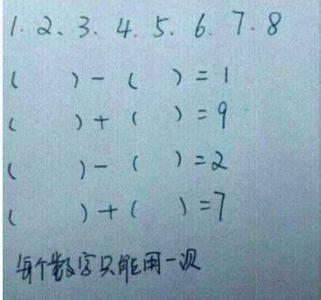 1. 2、3. 4. 5. 6. 7. 8
(　　) - (　　) = 1
(　　) + (　　) = 9
(　　) - (　　) = 2
(　　) + (　　) = 7
每个数字只能用一次